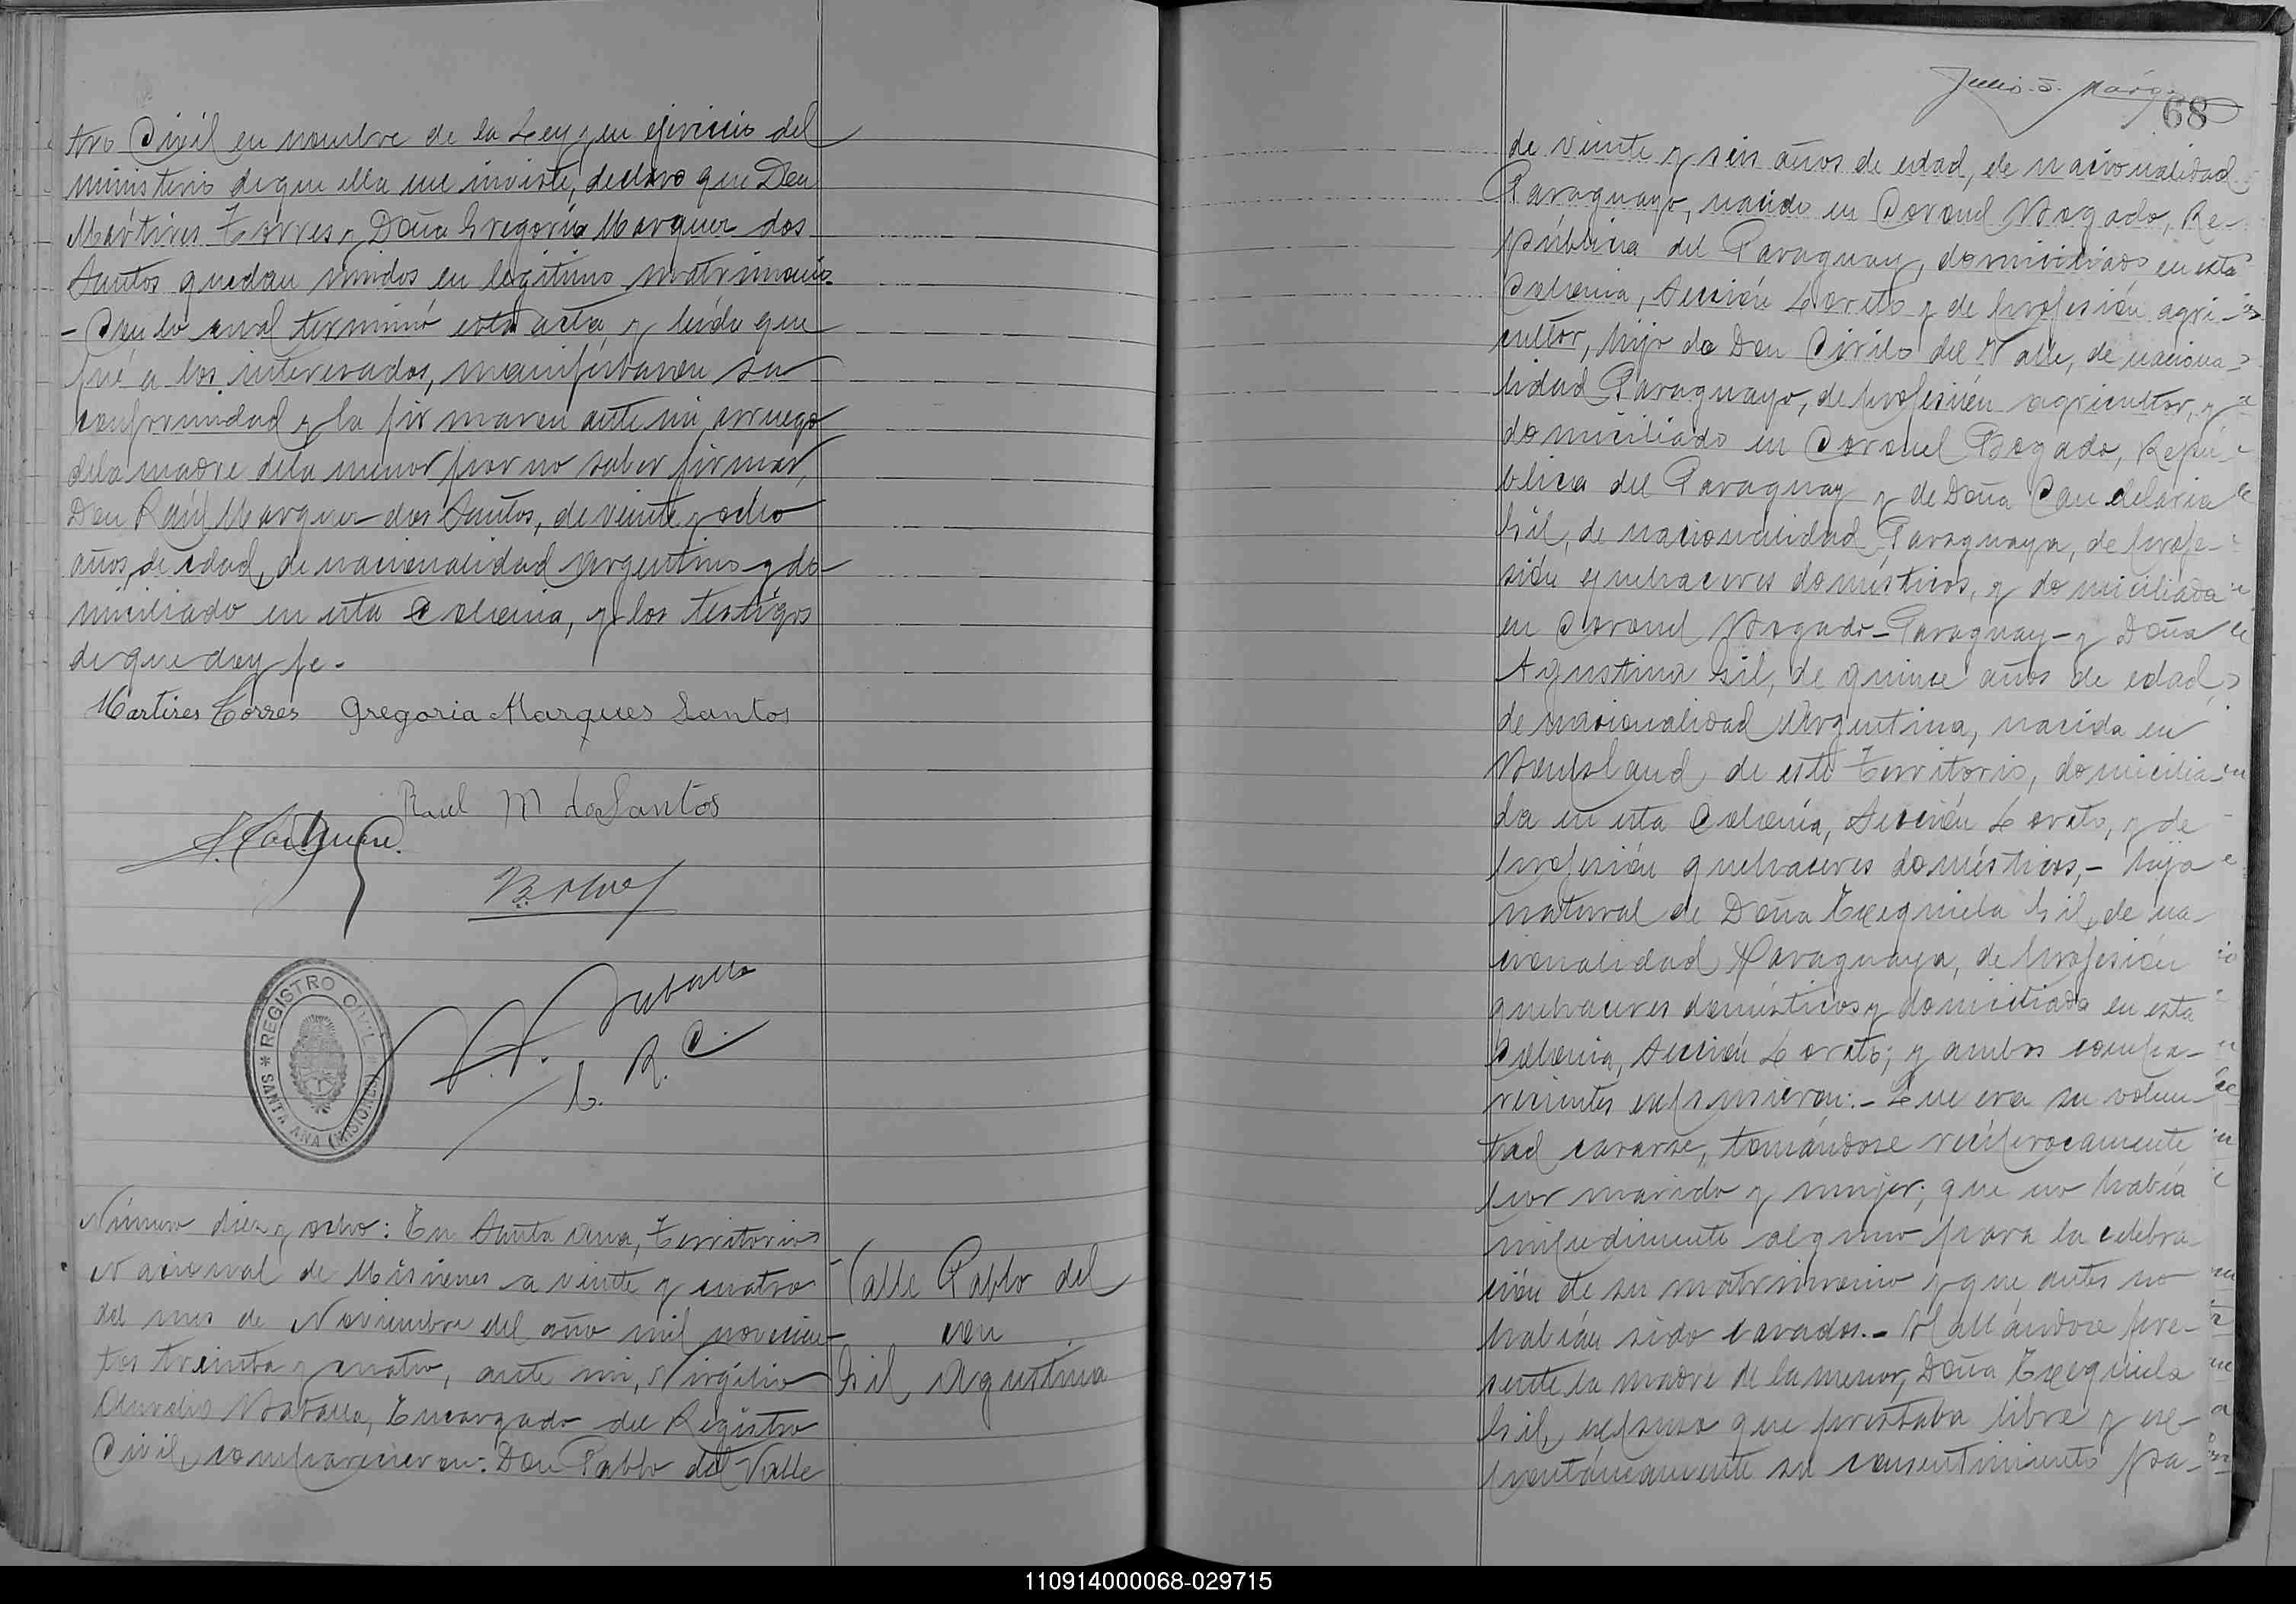 tro Civil en nombre de la Ley y en ejercicio del
ministerio de que ella me inviste, declaro que Don
Mártires Torres y Doña Gregoria Marquez dos
Santos quedan unidos en legítimo matrimonio.
- Con lo cual terminó esta acta, y leída que
fué a los interesados, manifestaron su
conformidad y la firmaron ante mi, a ruego
de la madre de la menor por no saber firmar,
Don Raúl Marquez dos Santos, de veinte y ocho
años, de edad, de nacionalidad Argentino y do-
miciliado en esta Colonia, y los testigos
de que doy fe.-
Martires Torres Gregoria Marques Santos
Raul M dosSantos
REGISTRO CIVIL
* SANTA ANA (MISIONES)
E. R. C.
Número diez y ocho: En Santa Ana, Territorio
Nacional de Misiones a veinte y cuatro
del mes de Noviembre del año mil novecien-
tos treinta y cuatro, ante mi, Virgilio
Aurelio Zaballa, Encargado del Registro
Civil, comparecieron: Don Pablo del Valle
Valle Pablo del
con
Gil Agustina
68
de veinte y seis años de edad, de nacionalidad
Paraguayo, nacido en Coronel Bogado, Re-
pública del Paraguay, domiciliado en esta
Colonia, Sección Loreto y de profesión agri-
cultor, hijo de Don Cirilo del Valle, de naciona-
lidad Paraguayo, de profesión agricultor, y
domiciliado en Coronel Bogado, Repú-
blica del Paraguay y de Doña Candelaria
Gil, de nacionalidad Paraguaya, de profe-
sión quehaceres domésticos, y domiciliada
en Coronel Bogado-Paraguay- y Doña
Agustina Gil, de quince años de edad,
de nacionalidad Argentina, nacida en
Bonpland de este Territorio, domicilia-
da en esta Colonia, Sección Loreto, y de
profesión quehaceres domésticos,- hija
natural de Doña Exequiela Gil, de na-
cionalidad Paraguaya, de profesión
quehaceres domésticos y domiciliada en esta
Colonia, Sección Loreto; y ambos compa-
recientes expusieron:- Que era su volun-
tad casarse, tomándose recíprocamente
por marido y mujer; que no había
impedimento alguno para la celebra-
ción de su matrimonio y que antes no
habían sido casados.- Hallándose pre-
sente la madre de la menor, Doña Exequiela
Gil, expuso que prestaba libre y es-
pontáneamente su consentimiento pa-
110914000068-029715